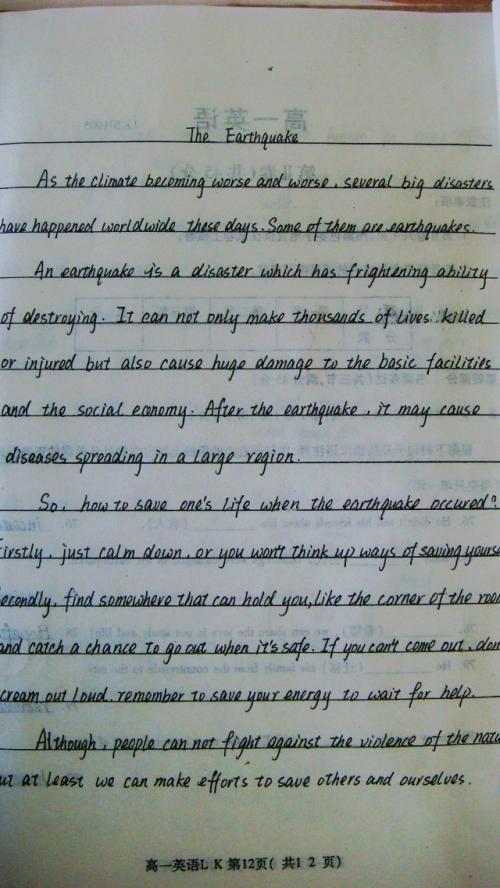 The Earthquake
As the climate becoming worse and worse, several big disasters
have happened worldwide these days. Some of them are earthquakes.
An earthquake is a disaster which has frightening ability
of destroying. It can not only make thousands of lives killed
or injured but also cause huge damage to the basic facilities
and the social economy. After the earthquake, it may cause
diseases spreading in a large region.
So, how to save one's life when the earthquake occured?
Firstly, just calm down, or you won't think up ways of saving yourse
Secondly, find somewhere that can hold you, like the corner of the roo
and catch a chance to go out when it's safe. If you can't come out, don
cream out loud, remember to save your energy to wait for help.
Although, people can not fight against the violence of the natu
ut at least we can make efforts to save others and ourselves.
高一英语L K 第12页( 共1 2 页)